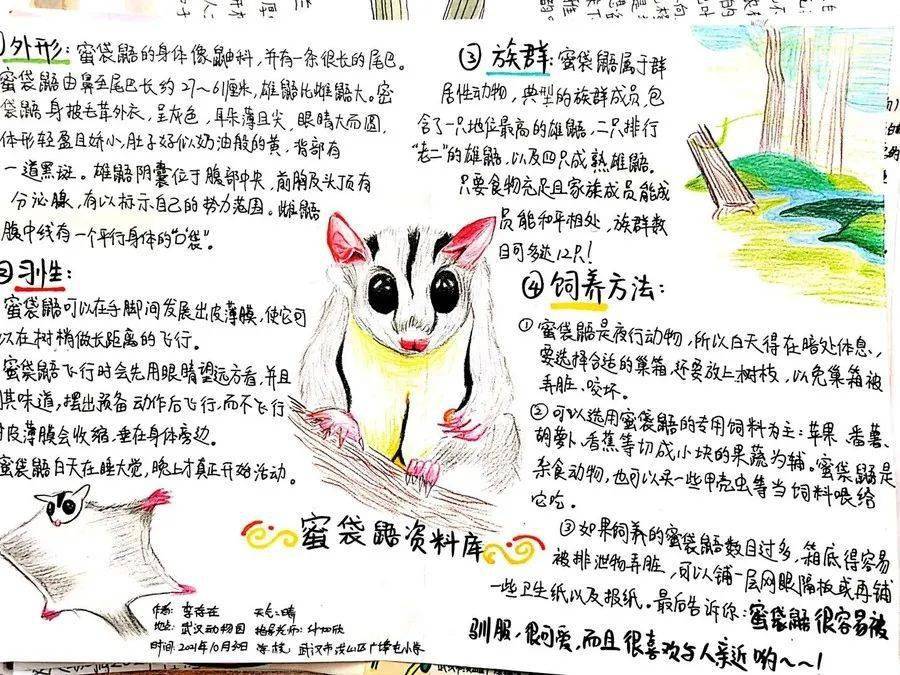 外形：蜜袋鼯的身体像鼠由科，并有一条很长的尾巴。
蜜袋鼯由鼻至尾巴长约27～61厘米，雄鼯比雌鼯大。蜜
袋鼯身被毛茸外衣，呈灰色，耳朵薄且尖，眼睛大而圆，
体形轻盈且娇小，肚子好似奶油般的黄，背部有
一道黑斑。雄鼯阴囊位于腹部中央，前胸及头顶有
分泌腺，有以标示自己的势力范围。雌鼯
腹中线有一个平行身体的“袋”。
习性：
蜜袋鼯可以在手脚间发展出皮薄膜，使它可
以在树梢做长距离的飞行。
蜜袋鼯飞行时会先用眼睛望远方看，并且
其味道，摆出预备动作后飞行，而不飞行
时皮薄膜会收缩，垂在身体旁边。
蜜袋鼯白天在睡大觉，晚上才真正开始活动。
蜜袋鼯资料库
作者：李 天气：晴
地址：武汉动物园 指导老师：
时间：2021年10月30日 学校：武汉市洪山区广埠屯小学
③ 族群：蜜袋鼯属于群
居性动物，典型的族群成员，包
含了一只地位最高的雄鼯，二只排行
“老二”的雄鼯，以及四只成熟雌鼯。
只要食物充足且家族成员能成
员能和平相处，族群数
目可多达12只！
④ 饲养方法：
① 蜜袋鼯是夜行动物，所以白天得在暗处休息，
要选择合适的巢箱，还要放上树枝，以免巢箱被
弄脏、咬坏。
② 可以选用蜜袋鼯的专用饲料为主：苹果、番薯、
胡萝卜、香蕉等切成小块的果蔬为辅。蜜袋鼯是
杂食动物，也可以买一些甲壳虫等当饲料喂给
它吃。
③ 如果饲养的蜜袋鼯数目过多，箱底得容易
被排泄物弄脏，可以铺一层网眼隔板或再铺
一些卫生纸以及报纸。最后告诉你：蜜袋鼯很容易被
驯服，很可爱，而且很喜欢与人亲近哟～～！